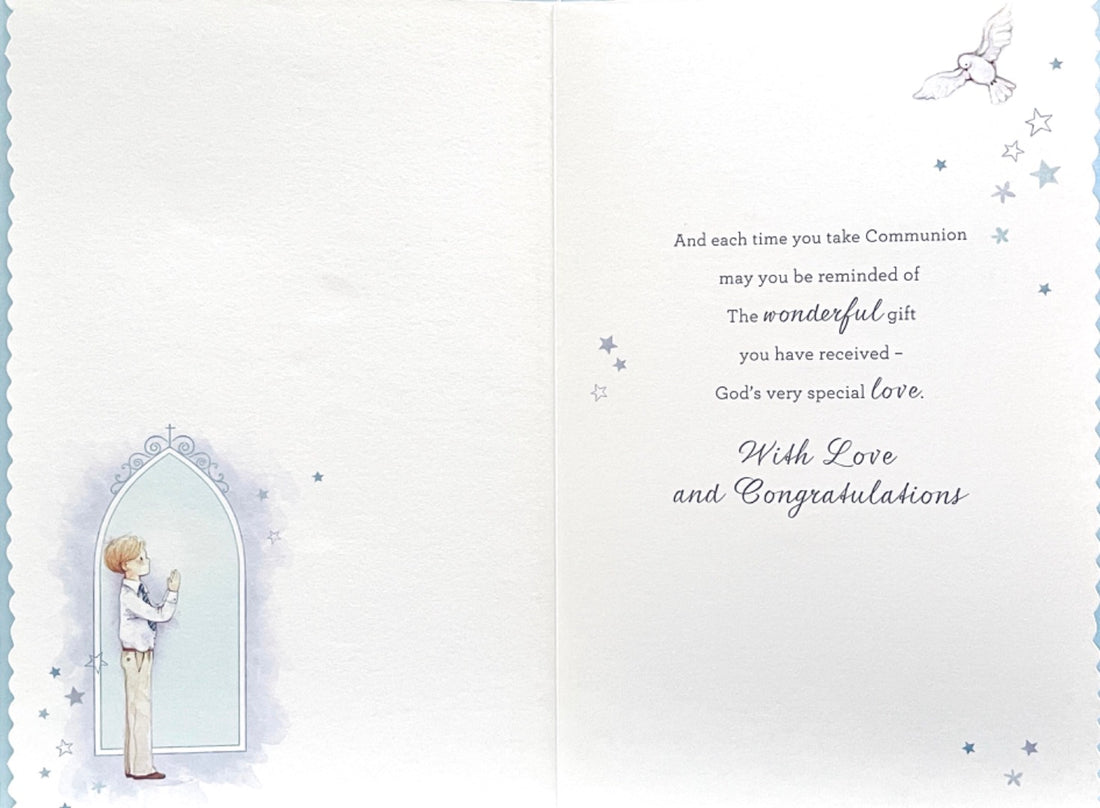 And each time you take Communion
may you be reminded of
The wonderful gift
you have received –
God's very special love.
With Love
and Congratulations